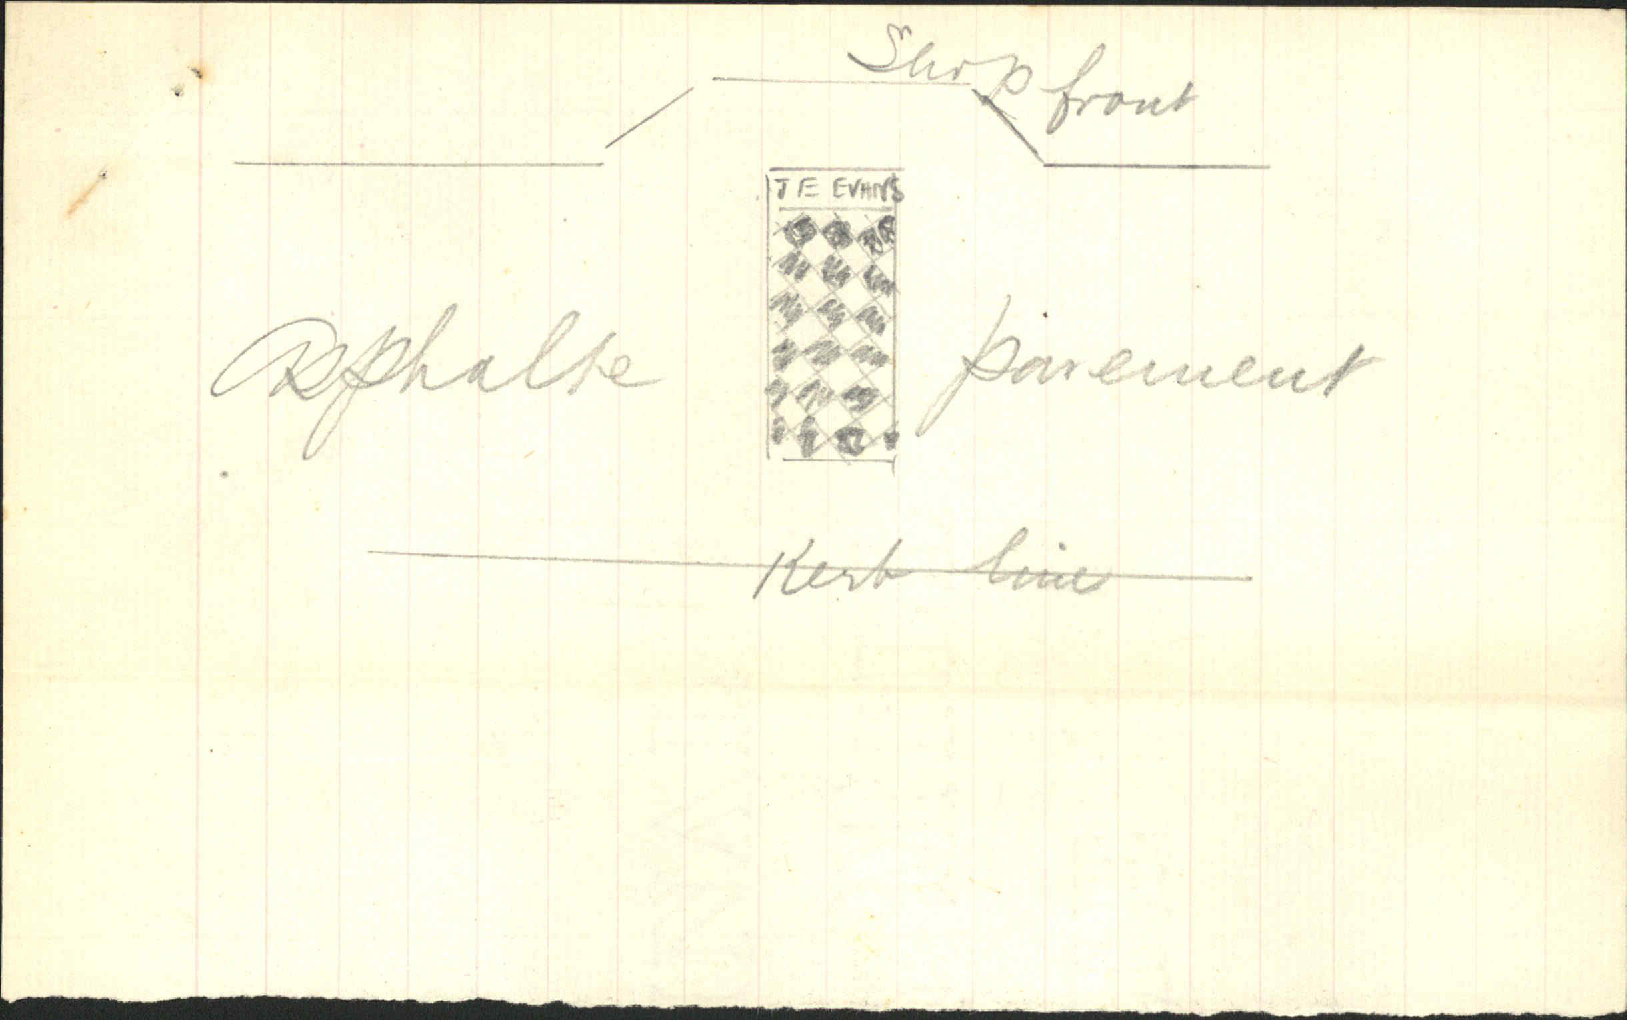 Shop front
J E EVANS
Asphalte pavement
Kerb line